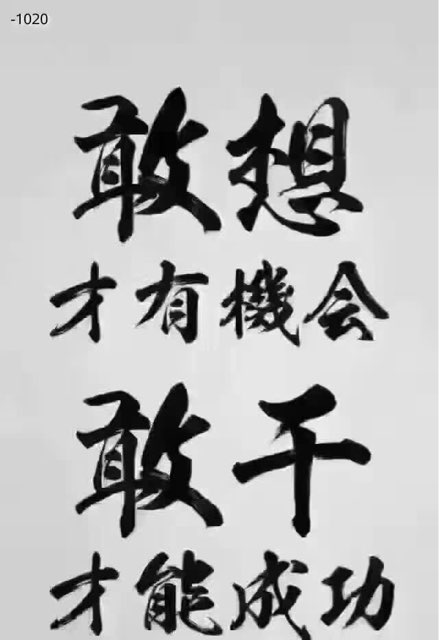 -1020
敢想
才有機会
敢干
才能成功